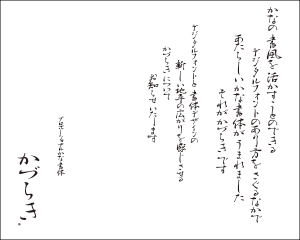 かなの書風を活かすことのできる
デジタルフォントのあり方をさぐるなかで
あたらしいかな書体がうまれました
それがかづらきです
デジタルフォントと書体デザインの
新しい地平の広がりを感じさせる
かづらきについて
お知らせいたします
プロポーショナルかな書体
かづらき